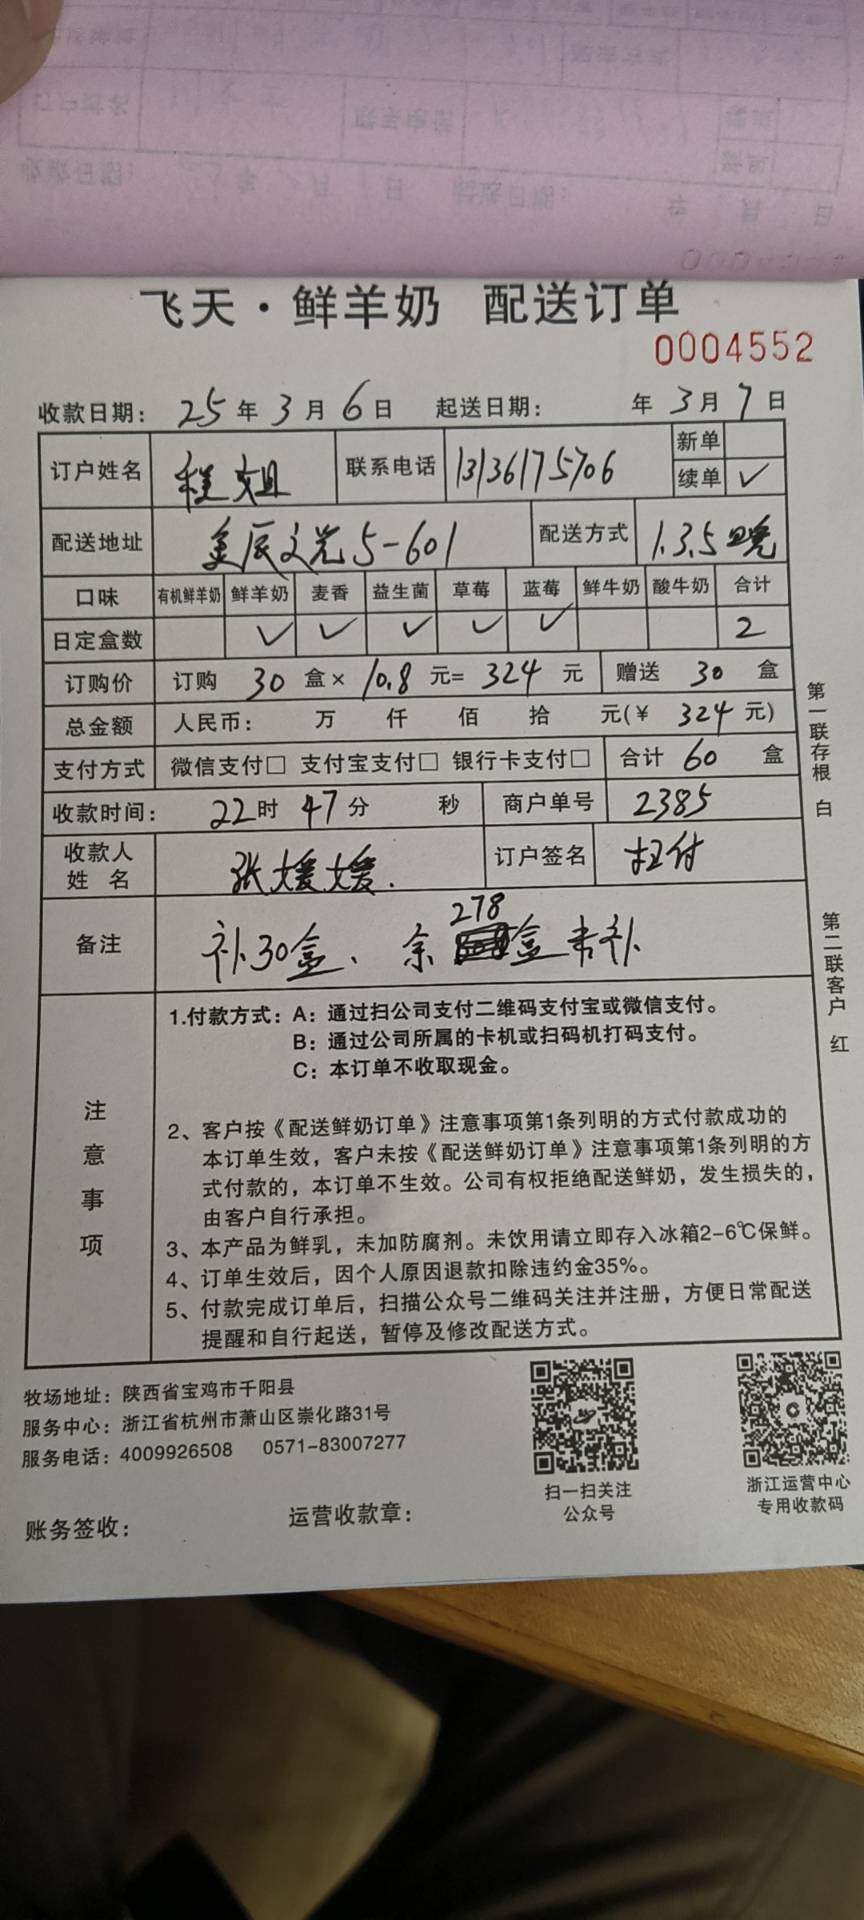 飞天·鲜羊奶 配送订单
0004552
收款日期: 25年3月6日 起送日期: 年3月7日
订户姓名 程姐 联系电话 13136175706 新单
续单 ✓
配送地址 5-601 配送方式 1.3.5晚
口味 有机鲜羊奶 鲜羊奶 麦香 益生菌 草莓 蓝莓 鲜牛奶 酸牛奶 合计
日定盒数 ✓ ✓ ✓ ✓ ✓ 2
订购价 订购 30 盒× 10.8 元= 324 元 赠送 30 盒
总金额 人民币: 万 仟 佰 拾 元(¥ 324 元)
支付方式 微信支付□ 支付宝支付□ 银行卡支付□ 合计 60 盒
收款时间: 22时47分 秒 商户单号 2385
收款人姓名 张媛媛. 订户签名 扫付
备注 补30盒、余278盒未补
注意事项
1.付款方式: A: 通过扫公司支付二维码支付宝或微信支付。
B: 通过公司所属的卡机或扫码机打码支付。
C: 本订单不收取现金。
2、客户按《配送鲜奶订单》注意事项第1条列明的方式付款成功的
本订单生效，客户未按《配送鲜奶订单》注意事项第1条列明的方
式付款的，本订单不生效。公司有权拒绝配送鲜奶，发生损失的，
由客户自行承担。
3、本产品为鲜乳，未加防腐剂。未饮用请立即存入冰箱2-6℃保鲜。
4、订单生效后，因个人原因退款扣除违约金35%。
5、付款完成订单后，扫描公众号二维码关注并注册，方便日常配送
提醒和自行起送，暂停及修改配送方式。
第一联存根 白
第二联客户 红
牧场地址: 陕西省宝鸡市千阳县
服务中心: 浙江省杭州市萧山区崇化路31号
服务电话: 4009926508 0571-83007277
扫一扫关注
公众号
浙江运营中心
专用收款码
账务签收: 运营收款章: